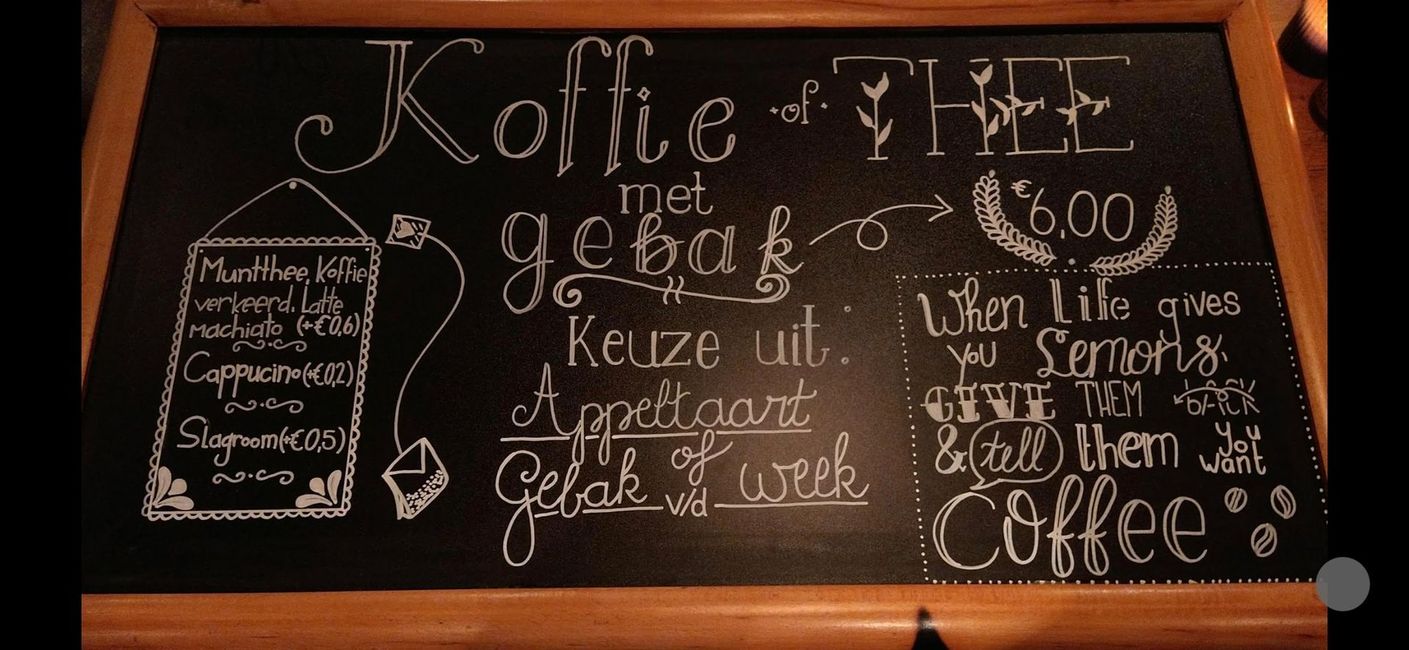 Koffie of THEE
met
gebak
€6,00
Keuze uit:
Appeltaart
of
Gebak v/d week
Muntthee, Koffie
verkeerd. Latte
machiato (+€0,6)
Cappucino (+€0,2)
Slagroom (+€0,5)
When Life gives
you Lemons,
GIVE THEM BACK
& tell them you
want
Coffee